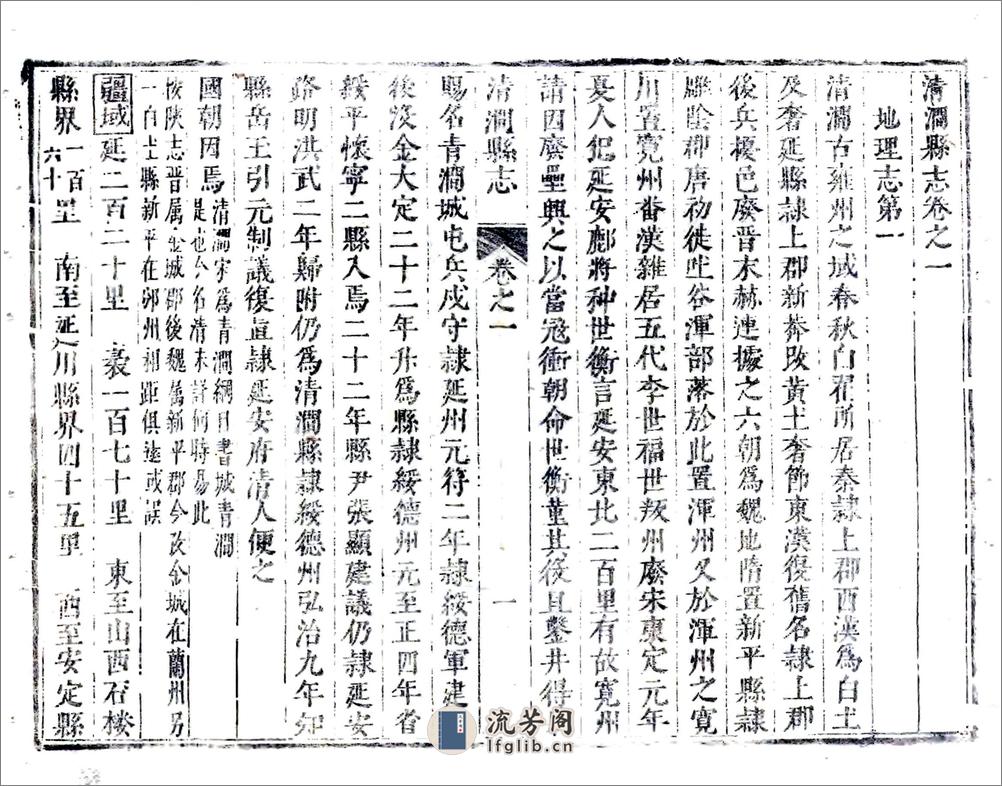 清澗縣志卷之一
地理志第一
清澗古雍州之域春秋白翟所居秦隷上郡西漢爲白土
及奢延縣隷上郡新莽改黃土奢節東漢復舊名隷上郡
後兵擾邑廢晉末赫連據之六朝爲魏地隋置新平縣隷
雕陰郡唐初徙吐谷渾部落於此置渾州又於渾州之寬
川置寬州番漢雜居五代李世福世叛州廢宋康定元年
夏人犯延安鄜將种世衡言延安東北二百里有故寬州
請因廢壘興之以當冦衝朝命世衡董其役且鑿井得
清澗縣志 卷之一 一
賜名青澗城屯兵戍守隷延州元符二年隷綏德軍建
後沒金大定二十二年升爲縣隷綏德州元至正四年省
綏平懷寧二縣入焉二十二年縣尹張顯建議仍隷延安
路明洪武二年歸附仍爲清澗縣隷綏德州弘治九年知
縣岳王引元制議復直隷延安府清人便之
國朝因焉清澗宋爲青澗綱目書城青澗
是也今名清未詳何時易此
按陝志晉属金城郡後魏属新平郡今攷金城在蘭州另
一白土縣新平在邠州相距俱遠或誤
疆域延二百二十里 袤一百七十里 東至山西石楼
縣界一百
六十里 南至延川縣界四十五里 西至安定縣
流芳阁
lfglib.cn